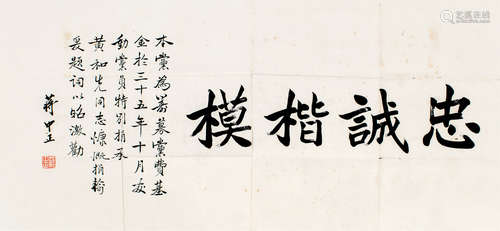 忠誠楷模
本黨為籌募黨費基
金於三十五年十月發
動黨員特別捐承
黃和先同志慷慨捐輸
爰題詞以昭激勸
蔣中正